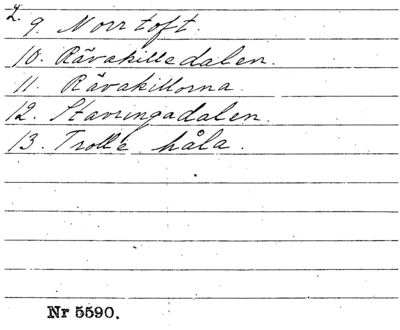 2.
9. Norrtoft.
10. Rävakilledalen.
11. Rävakillorna.
12. Stavringadalen.
13. Trolle håla.
Nr 5590.